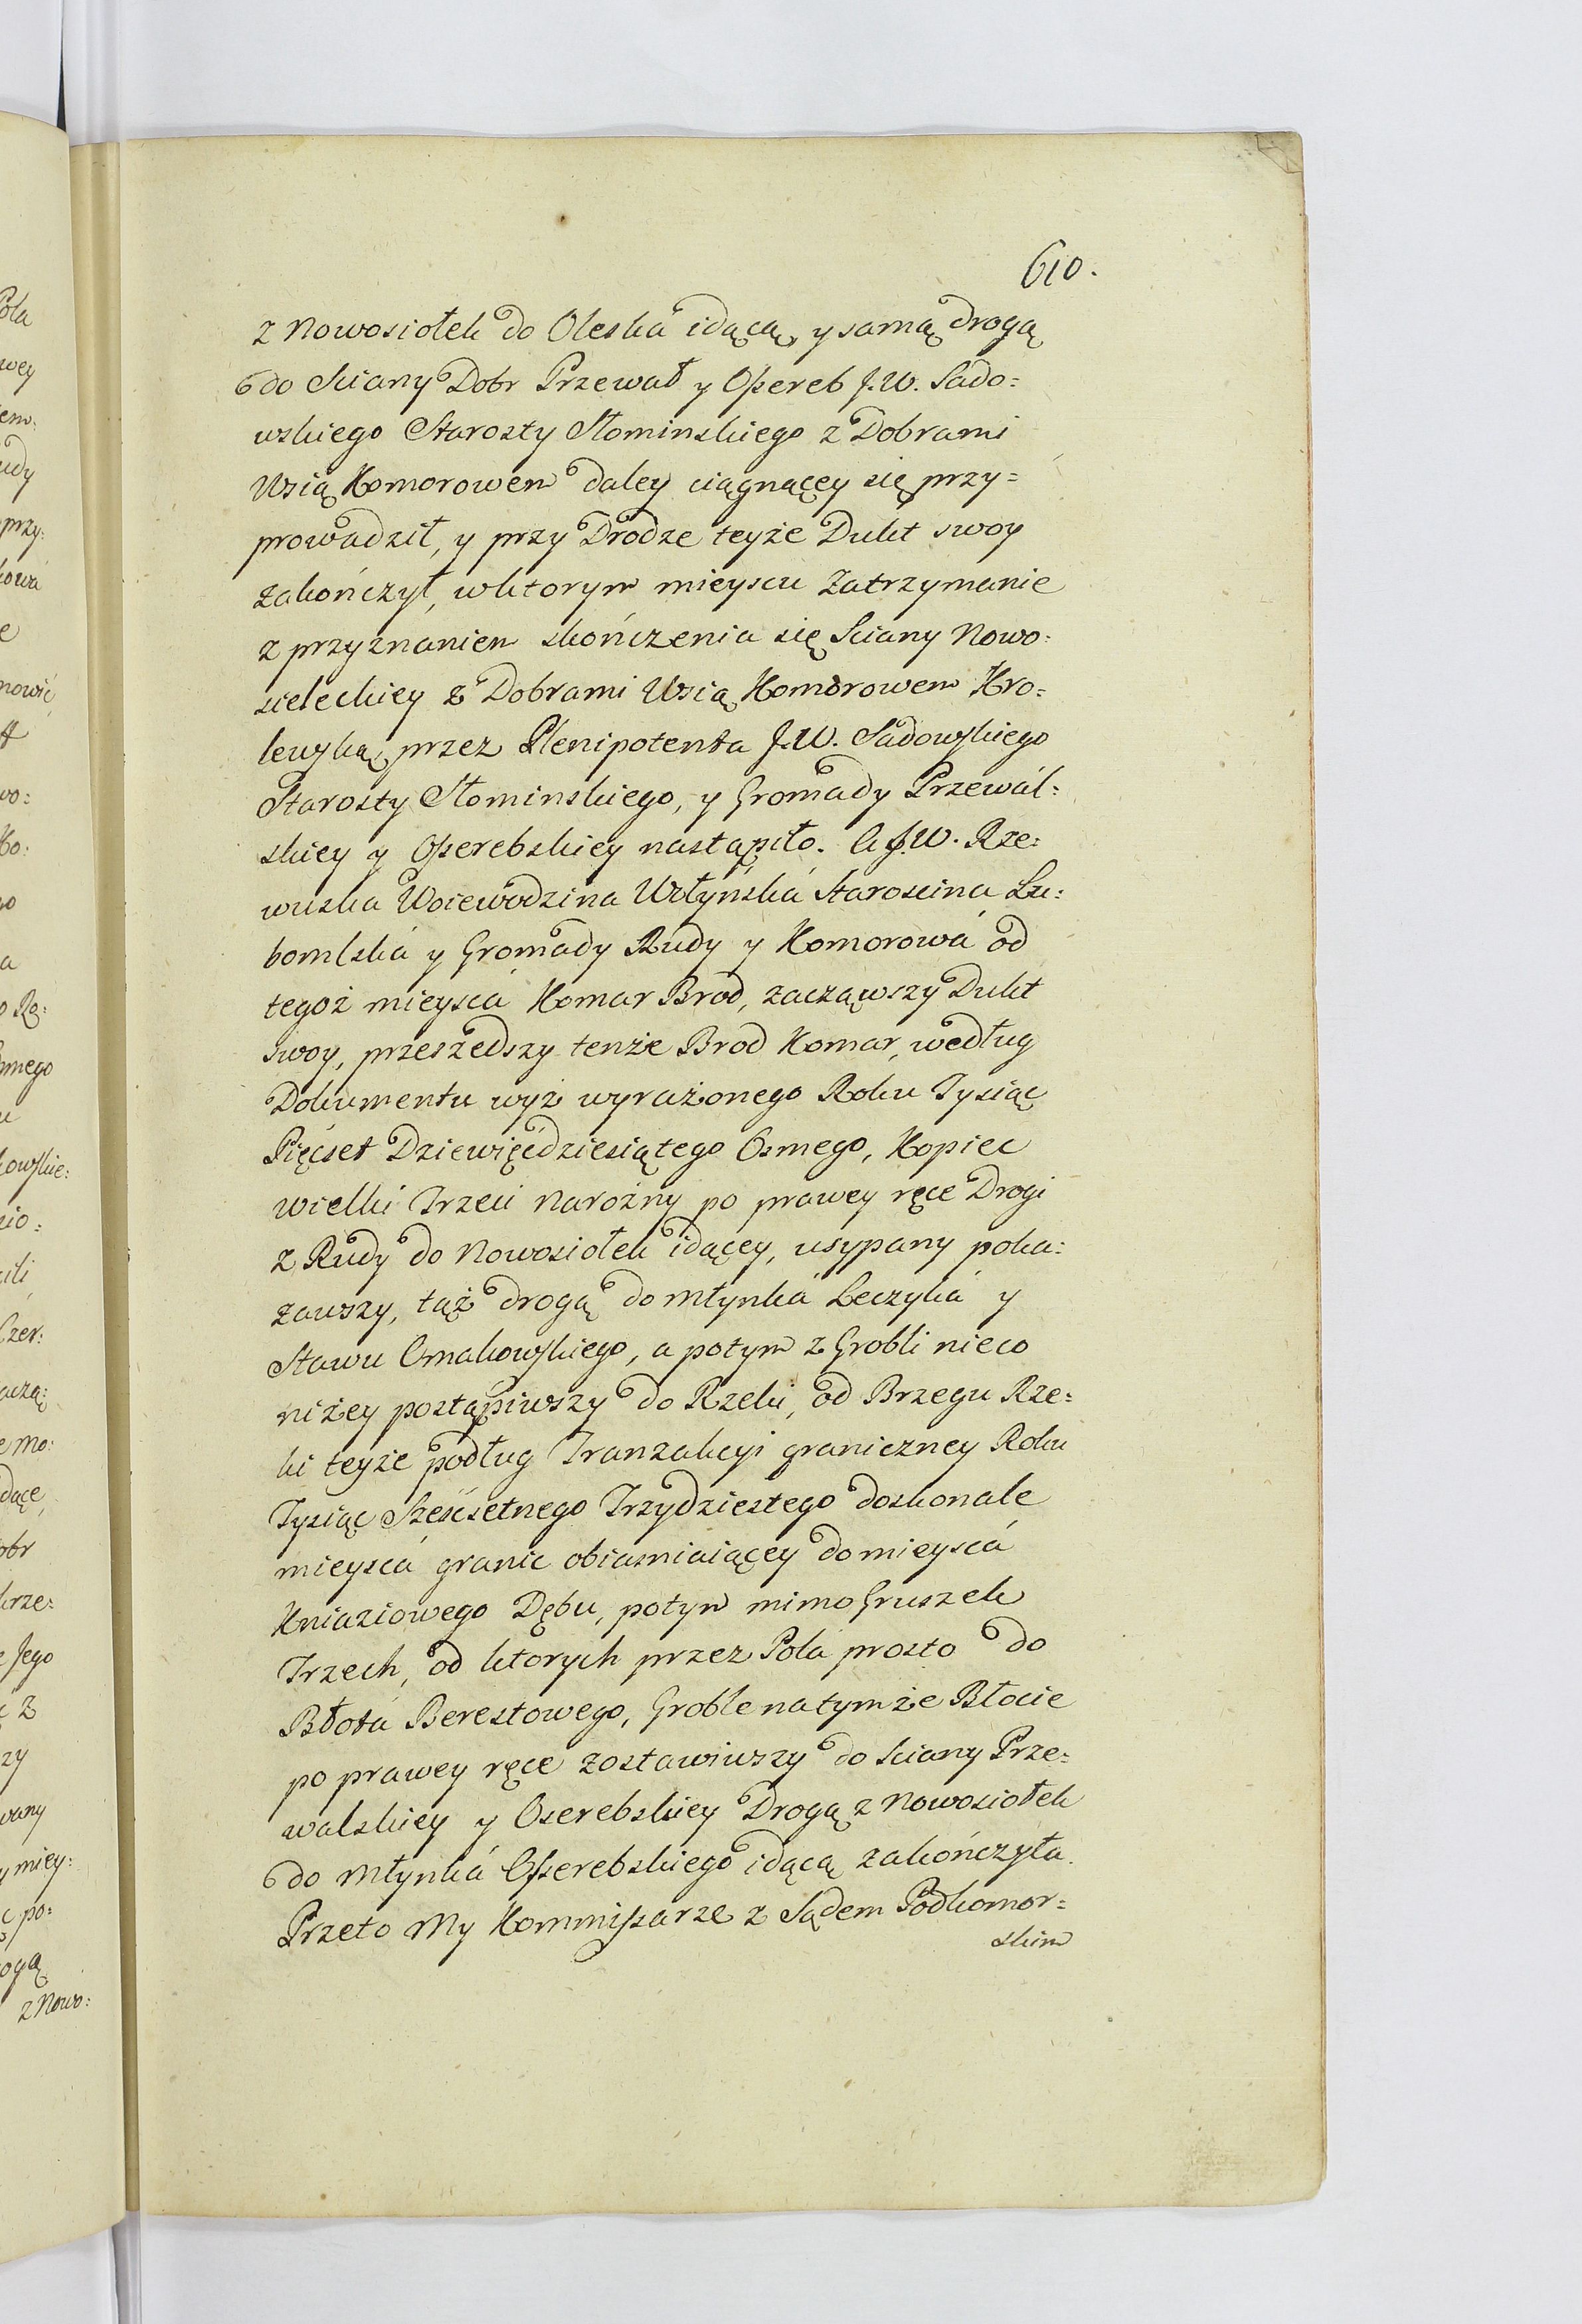 610.
z Nowosiołek do Oleska idącą, y samą drogą
do Sciany Dobr Przewał y Ossereb J.W. Sado=
wskiego Starosty Słominskiego z Dobrami
Wsią Komorowem daley ciągnącęy się przy=
prowadził, y przy Drodze teyże Dukt swoy
zakończył, w ktorym mieyscu Zatrzymanie
z przyznaniem skończenia się Sciany Nowo=
sieleckiey z Dobrami Wsią Komorowem Kro=
lewską, przez Plenipotenta J.W. Sadowskiego
Starosty Słominskiego, y Gromady Przewál=
skiey y Osserebskiey nastąpiło. A J.W. Rze=
wuska Woiewodzina Wołyńská Staroscina Lu=
bomlská y Gromady Rudy y Komorowá od
tegoż mieyscá Komar Brod, zacząwszy Dukt
swoy, przeszedszy tenże Brod Komar, według
Dokumentu wyż wyrażonego Roku Tysiąc
Pięćset Dziewięćdziesiątego Osmego, Kopiec
wielki Trzeci narożny po prawey ręce Drogi
z Rudy do Nowosiołek idącey, usypany poka=
zawszy, tąż drogą do Młynká Leczyká y
Stawu Omakowskiego, a potym z Grobli nieco
niżey postąpiwszy do Rzeki, od Brzegu Rze=
ki teyże podług Tranzakcyi graniczney Roku
Tysiąc Sześćsetnego Trzydziestego doskonale
mieyscá granic obiasniaiącey do mieyscá
Kniaziowego Dębu, potym mimo Gruszek
Trzech, od ktorych przez Pola prosto do
Błotá Berestowego, Groble na tymże Błocie
po prawey ręce zostawiwszy do Sciany Prze=
walskiey y Oserebskiey Drogą z Nowosiołek
do Młynká Osserebskiego idącą zakończyła.
Przeto My Kommissarze z Sądem Podkomor=
skim